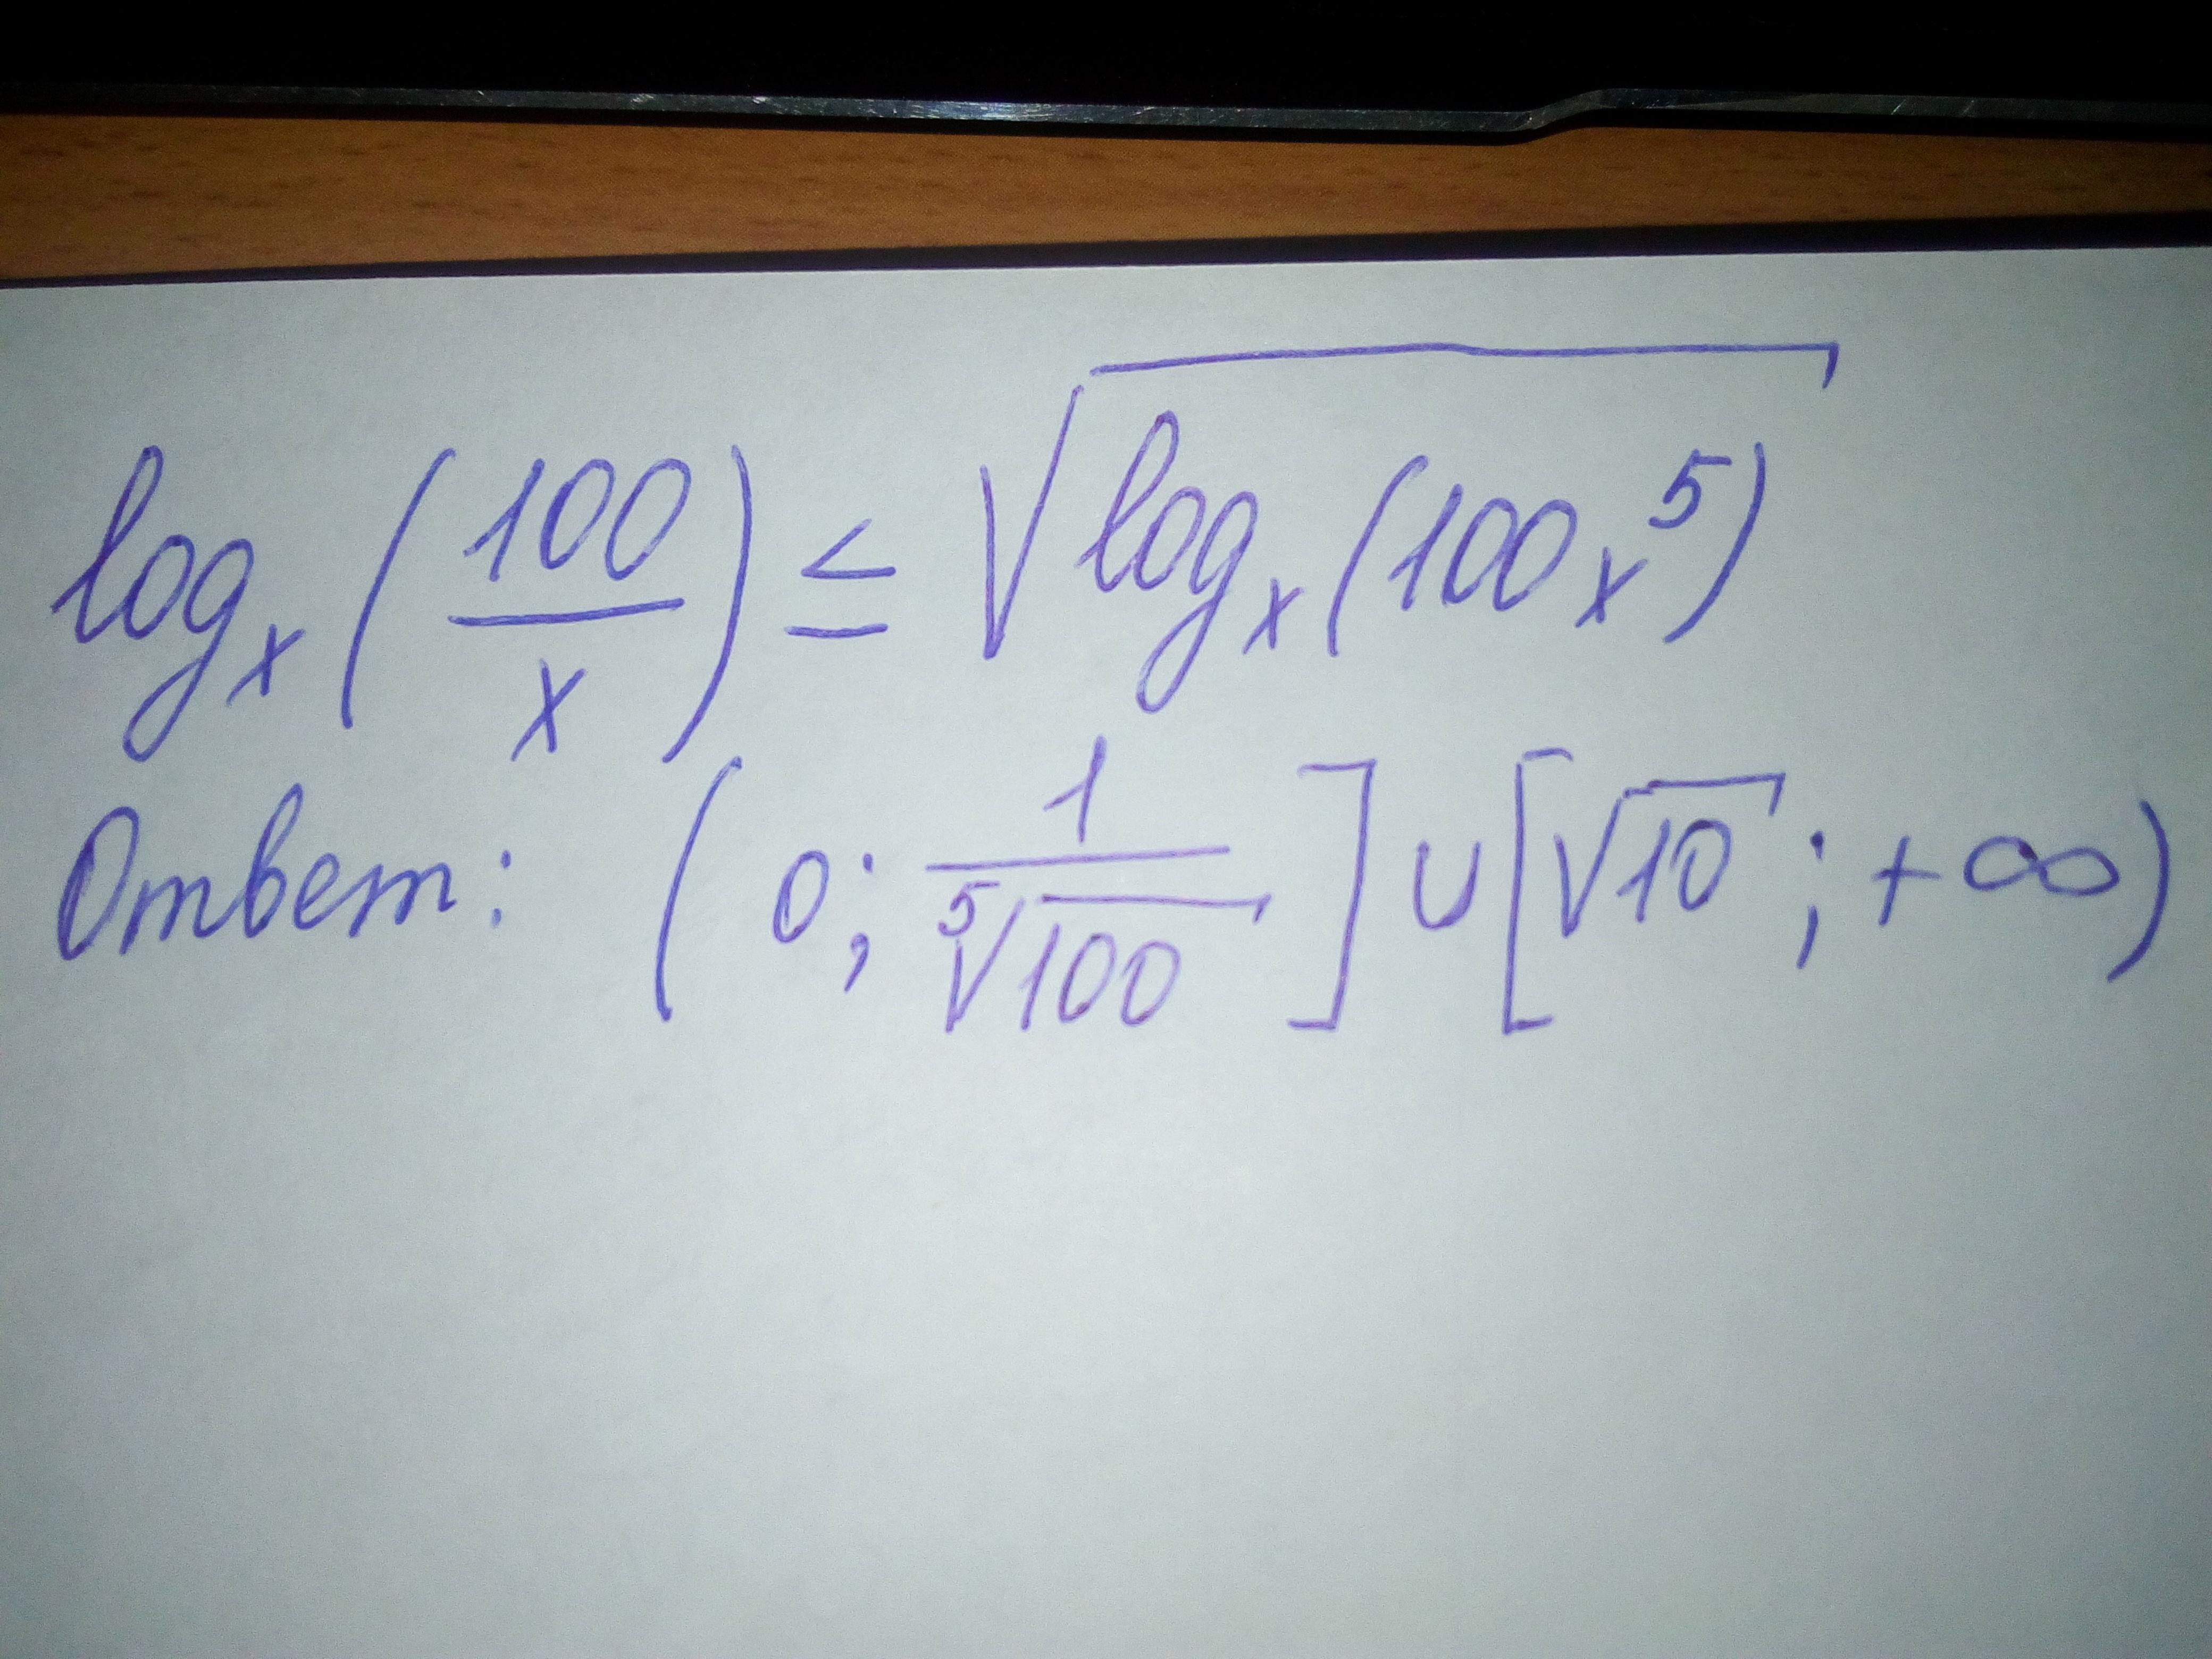 log_x (100/x) ≤ √(log_x (100x^5))
Ответ: (0; 1/⁵√100] ∪ [√10; +∞)